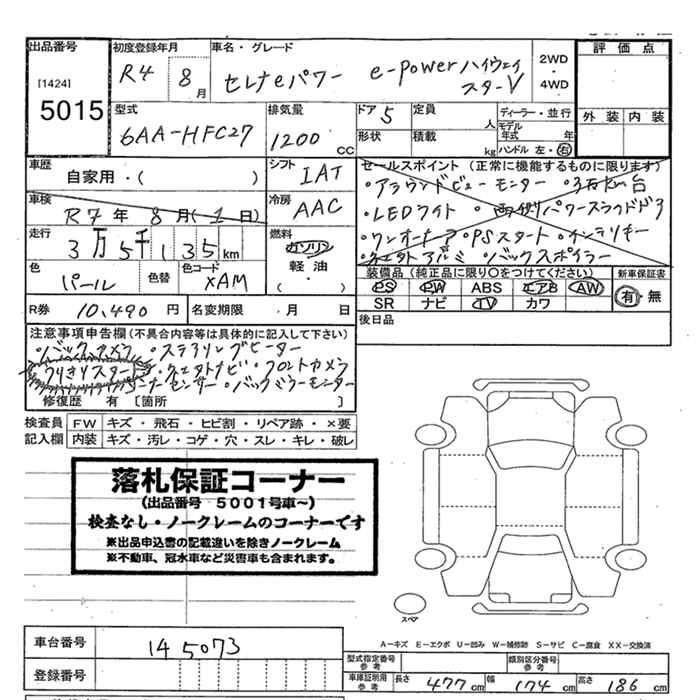 出品番号 初度登録年月 車名・グレード 評価点
[1424] 5015 R4 8月 セレナeパワー e-powerハイウェイスターV 2WD・4WD
外装 内装
型式 排気量 ドア 5 定員 人 ディーラー・並行
6AA-HFC27 1200 CC 形状 積載 kg モデル年式 年
ハンドル 左・右
車歴 自家用・( ) シフト IAT セールスポイント (正常に機能するものに限ります)
・アラウンドビューモニター ・3万km台
車検 R7年 8月( 1日) 冷房 AAC ・LEDライト ・両側パワースライドドア
走行 3万5千135km 燃料 ガソリン 軽油 ( ・ ) ・ワンオーナー ・PSスタート ・インテリキー
・社外アルミ ・バックスポイラー
色 パール 色替 色コード XAM 装備品 (純正品に限り○をつけてください) 新車保証書
PS PW ABS エアB AW 有・無
R券 10,490円 名変期限 月 日 SR ナビ TV カワ
後日品
注意事項申告欄(不具合内容等は具体的に記入して下さい)
・バックカメラ ・ステアリングヒーター
フロントカメラ
ーナーセンサー ・バックミラーモニター
修復歴 有 〔箇所 〕
検査員 FW キズ・飛石・ヒビ割・リペア跡・×要
記入欄 内装 キズ・汚レ・コゲ・穴・スレ・キレ・破レ
落札保証コーナー
(出品番号 5001号車～)
検査なし・ノークレームのコーナーです
※出品申込書の記載違いを除きノークレーム
※不動車、冠水車など災害車も含まれます。
スペア
A-キズ E-エクボ U-凹み W-補修跡 S-サビ C-腐食 XX-交換済
車台番号 145073
型式指定番号 参考 類別区分番号 参考
登録番号 車庫証明用 参考 長さ 477cm 幅 174cm 高さ 186cm